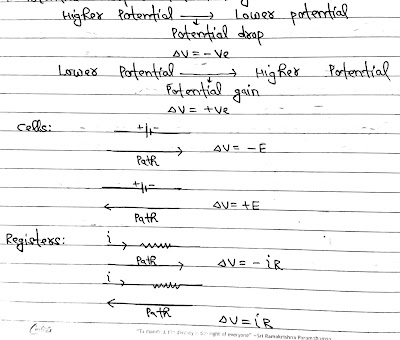 Higher Potential → Lower potential
Potential drop
ΔV = -Ve
Lower Potential → Higher Potential
Potential gain
ΔV = +Ve
Cells: +/-
Path
ΔV = -E
+/-
Path
ΔV = +E
Registers: i
Path
ΔV = -iR
i
Path
ΔV = iR
of everyone" ~Sri Ramakrishna